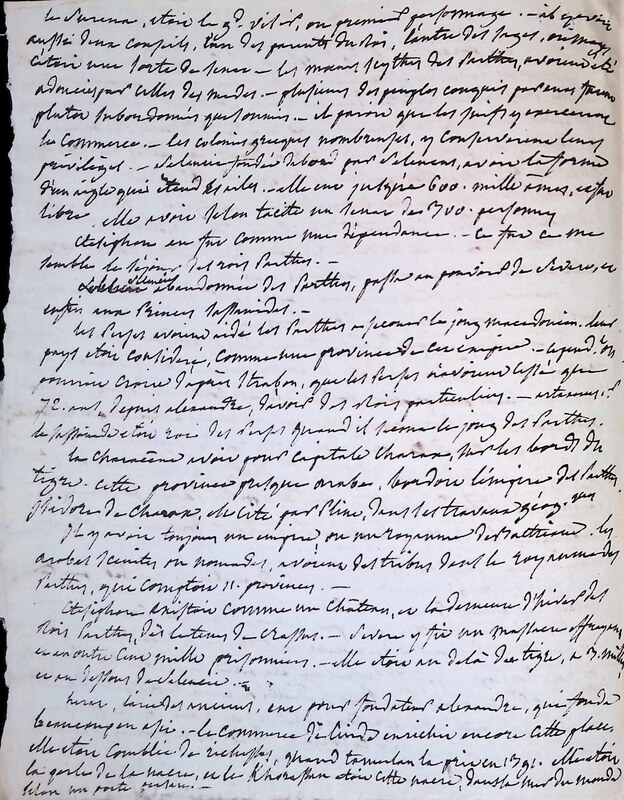 le Surena, étoit le gd. visir, ou premier personnage. — il y avoit
aussi deux conseils, l'un des parents du Roi, l'autre des sages, ou mages
c'étoit une sorte de Senat — les mœurs scythes des Parthes, avoient été
adoucies par celles des medes. — plusieurs des peuples conquis par eux furent
plutôt subordonnés que soumis. — il paroit que les juifs y exercerent
le commerce. — les colonies grecques nombreuses, y conserverent leurs
privilèges. — Seleucie fondée d'abord par Seleucus, avoit la forme
d'un aigle qui étend ses ailes. — elle eut jusqu'à 600. mille âmes,
libre elle avoit selon tacite un Senat de 300. personnes
Ctesiphon en fut comme une dépendance. — Ce fut ce me
semble le séjour des rois Parthes. —
Seleucie abandonnée des Parthes, passa au pouvoir de Severe, et
enfin aux Princes Sassanides. —
les Perses avoient aidé les Parthes a secouer le joug macedonien. leur
pays étoit considéré, comme une province de cet empire — cepend.t on
pourroit croire d'après Strabon, que les Perses n'avoient cessé que
72. ans, depuis alexandre, d'avoir des Rois particuliers. —
le sassanide étoit roi des Perses quand il secoua le joug des Parthes.
la Characène avoit pour capitale Charax, sur les bords du
tigre. cette province presque arabe, bordoit l'empire des Parthes
isidore de Charax, est cité par Pline, dans ses travaux géog. ques
Il y avoit toujours un empire ou un royaume de Bactriane. les
arabes Scenites ou nomades, avoient des tribus dans le royaume des
Parthes, qui comptoit 11. provinces. —
Ctesiphon existoit comme un château, et la demeure d'hiver des
Rois Parthes, dès le tems de Crassus. — Severe y fit un massacre effroyable
et en outre cent mille prisonniers. — elle étoit au delà du tigre, a 3. milles
et au dessous de Seleucie. —
herat, l'aria des anciens, eut pour fondateur alexandre, qui fonda
beaucoup en asie. — le commerce de l'inde enrichit encore cette place
elle étoit comblée de richesses, quand tamerlan la prit en 1391. elle étoit
la perle de la nacre, et le Khorassan étoit cette nacre, dans la mer du monde
selon un poete persan. —